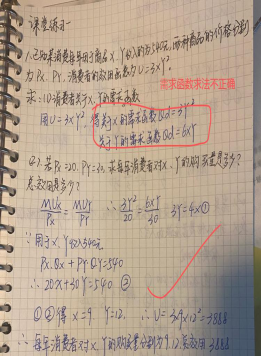 课堂练习一
1. 已知某消费者每年用于商品X、Y收入为540元，两种商品的价格分别
为Px、Py，消费者的效用函数为U=3XY².
求:(1)消费者关于X、Y的需求函数
需求函数求法不正确
用U=3XY², 得关于X的需求函数Qd=3Y²
关于Y的需求函数Qd=6XY
Q2. 若Px=20, Py=30, 求每年消费者对X、Y的购买量是多少?
总效用是多少?
MUx/Px = MUy/Py ∴ 3Y²/20 = 6XY/30 3Y=4X①
∵用于X、Y收入540元
Px.Qx+Py.QY=540
∴20X+30Y=540 ②
①②得 X=9 Y=12. ∴U=3×9×12²=3888
∴每年消费者对X、Y的购买量分别为9.12总效用3888